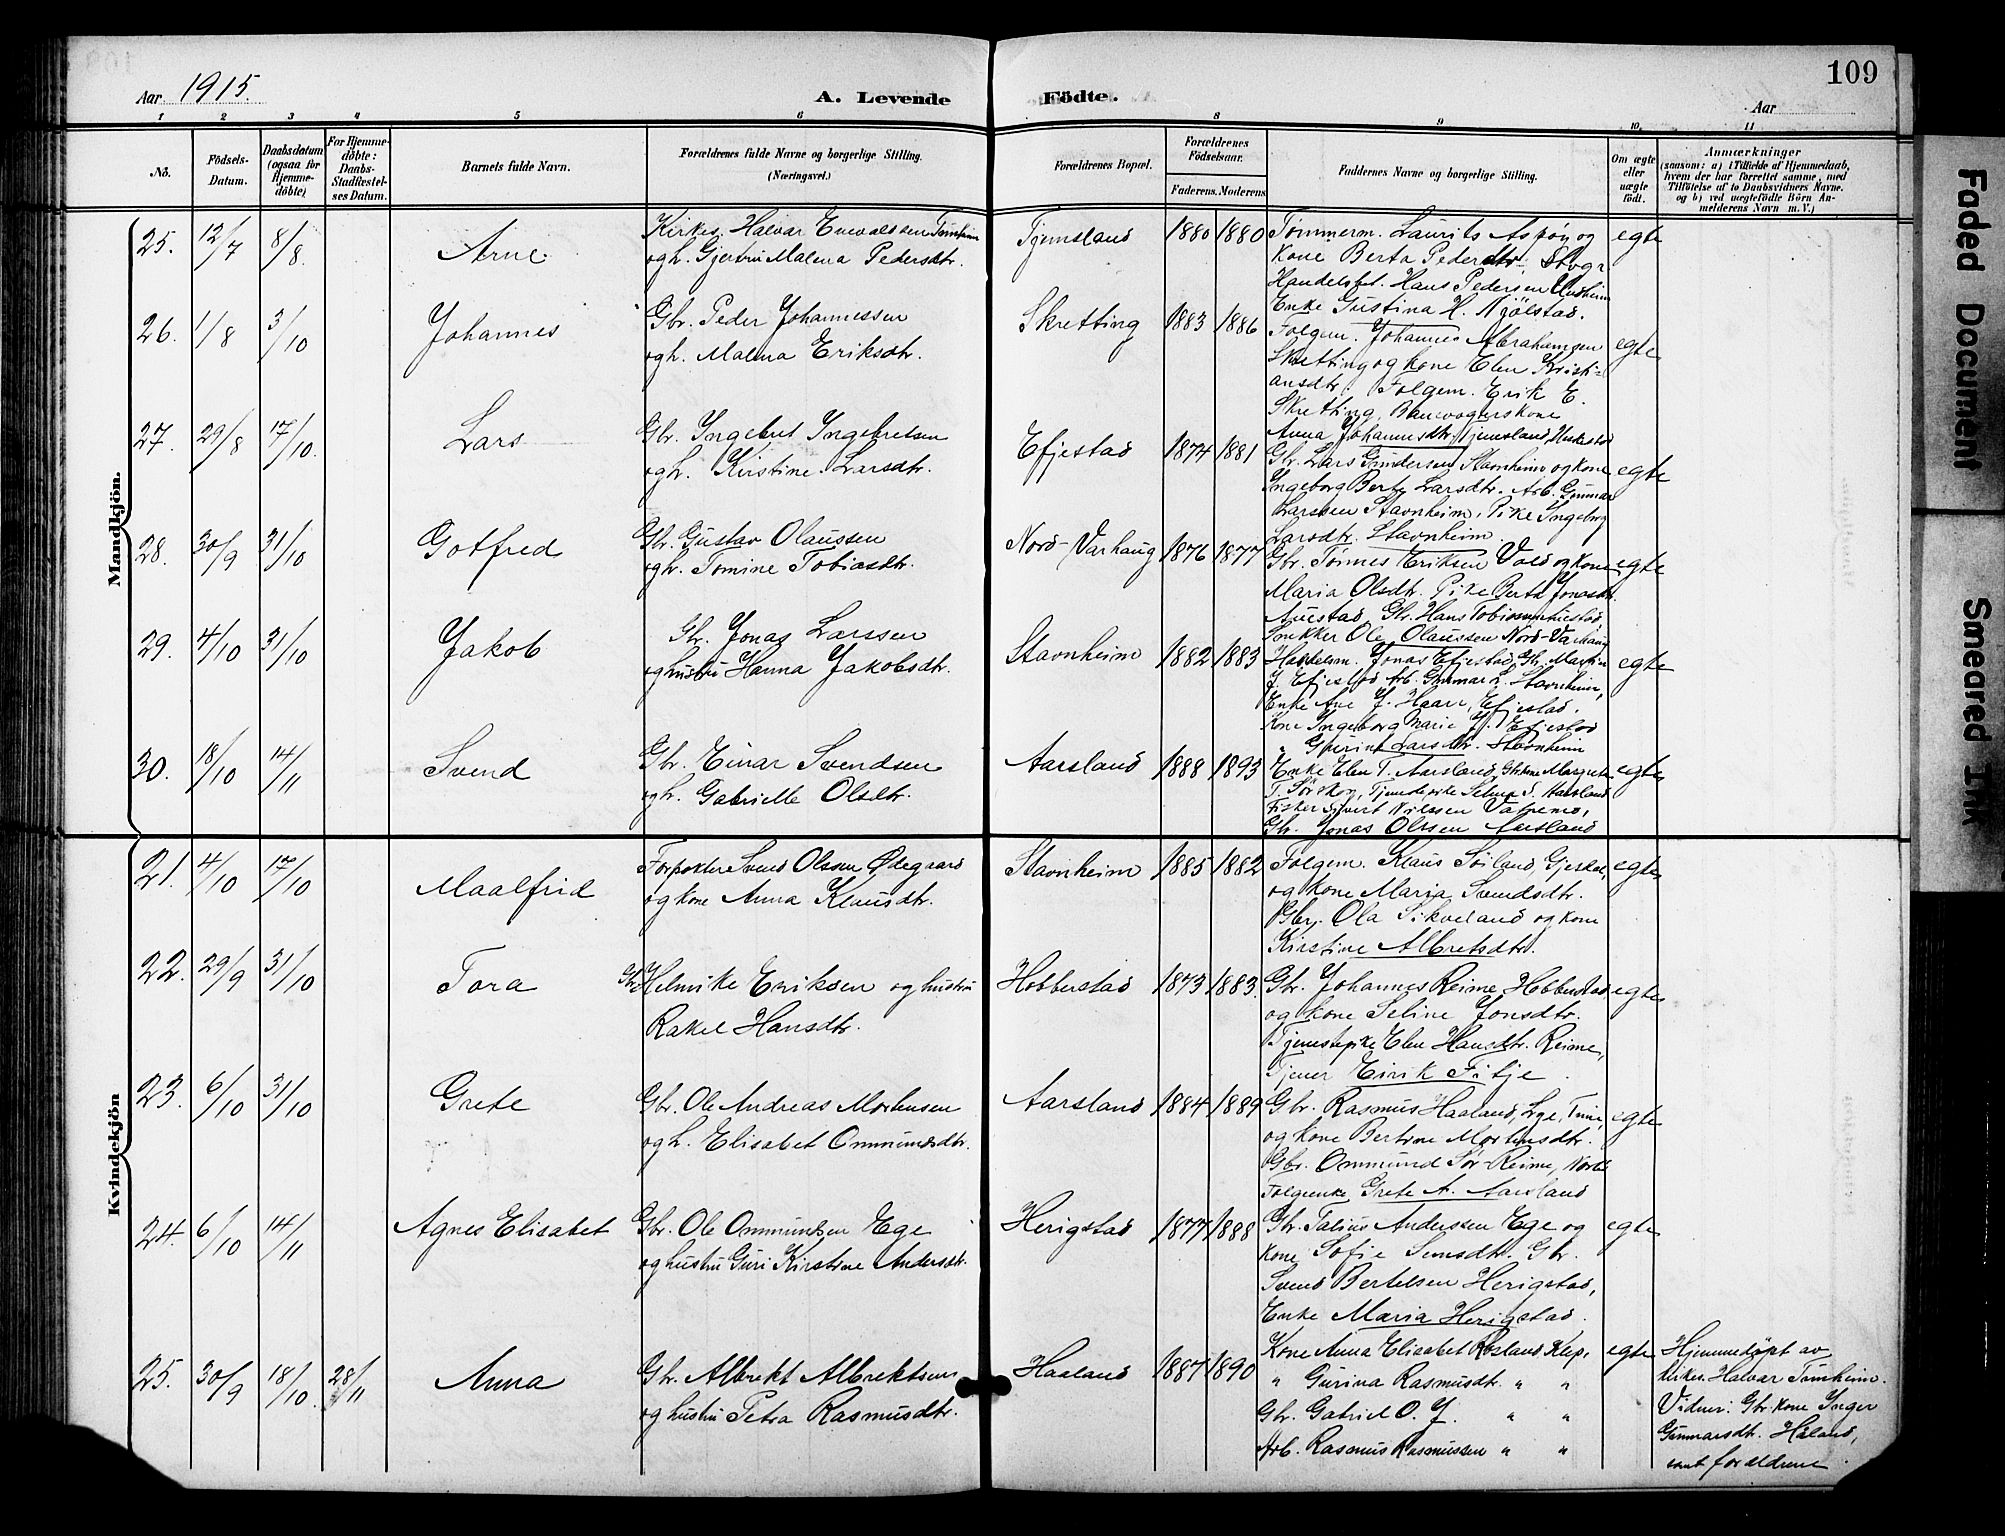 109
Aar 1915.
A. Levende Födte.
Aar
1 2 3 4 5 6 8 9 10 11
No.
Födsels-Datum.
Daabsdatum (ogsaa for Hjemmedöbte)
For Hjemmedöbte: Daabs-Stadfæstelses Datum.
Barnets fulde Navn.
Forældrenes fulde Navne og borgerlige Stilling. (Næringsvei.)
Forældrenes Bopæl.
Forældrenes Födselsaar.
Faderens. Moderens.
Faddernes Navne og borgerlige Stilling.
Om ægte eller uægte födt.
Anmærkninger
(saasom: a) i Tilfælde af Hjemmedaab, hvem der har forrettet samme, med Tilföielse af to Daabsvidners Navne. og b) ved uægtefödte Börn Anmelderens Navn m. V.)
Mandkjön.
25. 12/7 8/8 Arne
Kirkes. Halvar Enevaldsen Tømheim
og h. Gjertru Malena Pedersdtr.
Tjemsland 1880 1880
Tømmerm. Laurits Aspøy og
Kone Berta Pedersdtr.
Handelsbet. Hans Pedersen
Enke Gustina H. Njölstad.
egte
26. 1/8 3/10 Johannes
Gbr. Peder Johannessen
og h. Malena Eriksdtr.
Skretting 1883 1886
Folgem. Johannes Abrahamsen
Skretting og kone Elen Kristi-
ansdtr. Folgem. Erik E.
Skretting, Banevogterskone
Anna Johannesdtr. Tjemsland,
egte
27. 29/8 17/10. Lars
Gbr. Ingebret Ingebretsen
og h. Kirstine Larsdtr.
Efjestad 1874 1881
Gbr. Lars Gundersen Stavnheim og kone
Ingeborg Berte Larsdtr. Arb. Gunnar
Larssen Stavnheim, Pike Ingeborg
Larsdtr. Stavnheim.
egte
28. 30/9 31/10 Gotfred
Gbr. Gustav Olaussen
og h. Tomine Tobiasdtr.
Nord-Varhaug 1876 1877
Gbr. Tønnes Eriksen Vold og kone
Maria Olsdtr. Pike Berta Jonasdtr.
Auestad, Gbr. Hans Tobiassen Auestad,
Snekker Ole Olaussen Nord-Varhaug
egte
29. 4/10 31/10 Jakob
Gbr. Jonas Larssen
og hustru Hanna Jakobsdtr.
Stavnheim 1882 1883
Handelsm. Jonas Efjestad, Gbr. Martin
J. Efjestad Arb. Gunnar L. Stavnheim,
Enke Ane J. Haar, Efjestad.
Kone Ingeborg Marie J. Efjestad
" Gurine Larsdtr. Stavnheim
egte
30. 18/10 14/11 Svend
Gbr. Einar Svendsen
og h. Gabrielle Olsdtr.
Aarsland 1888 1893
Enke Elen T. Aarsland, Gbrkone Margreta
T. Sörskog, Tjenestepike Selma S. Aarsland
Fisker Sivert Nilssen
Gbr. Jonas Olssen Aarsland
egte
Kvindekjön
21. 4/10 17/10 Maalfrid
Forpakter Svend Olsen Ødegaard
og kone Anna Klausdtr.
Stavnheim 1885 1882
Folgem. Klaus Söiland, Gjesdal,
og kone Maria Svendsdtr.
Gbr. Ola Sikveland og kone
Kirstine Albretsdtr.
egte
22. 29/9 31/10 Tora
Gbr. Helmike Eriksen og hustru
Rakel Hansdtr.
Hobberstad 1873 1883.
Gbr. Johannes Reime, Hobberstad
og kone Seline Jonsdtr.
Tjenestepike Elen Hansdtr. Reime,
Tjener Eirik Fitje
egte
23. 6/10 31/10 Grete
Gbr. Ole Andreas Mortensen
og h. Elisabet Ommundsdtr.
Aarsland 1884 1889
Gbr. Rasmus Haaland, Lye, Time,
og kone Bertine Mortensdtr.
Gbr. Ommund Sör-Reime,
Folgeenke Grete A. Aarsland
egte
24. 6/10 14/11 Agnes Elisabet
Gbr. Ole Ommundsen Ege
og hustru Guri Kirstine Andersdtr.
Herigstad 1877 1888
Gbr. Talius Anderssen Ege og
kone Sofie Simsdtr. Gbr.
Svend Bertelsen Herigstad,
Enke Maria Herigstad.
egte
25. 30/9 18/10 28/11 Anna
Gbr. Albrekt Albrektsen
og hustru Petra Rasmusdtr.
Haaland 1887 1890
Kone Anna Elisabet Røsland Klep,
" Gurina Rasmusdtr. " "
Gbr. Gabriel O. J. " "
Arb. Rasmus Rasmussen " "
egte
Hjemmedöpt av
kirkes. Halvar Tømheim.
Vidner: Gbr. kone Inger
Gunnarsdtr. Håland,
samt forældrene
Faded Document
Smeared Ink